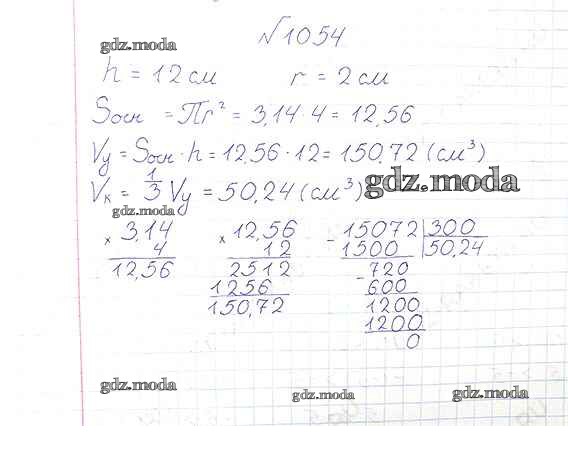 №1054
gdz.moda
h = 12 см r = 2 см
Sосн = πr² = 3,14 · 4 = 12,56
Vу = Sосн · h = 12,56 · 12 = 150,72 (см³)
Vк = 1/3 Vу = 50,24 (см³)
gdz.moda
gdz.moda
× 3,14
4
12,56
× 12,56
12
2512
1256
150,72
- 15072 | 300
1500 50,24
- 720
600
1200
1200
0
gdz.moda
gdz.moda
gdz.moda